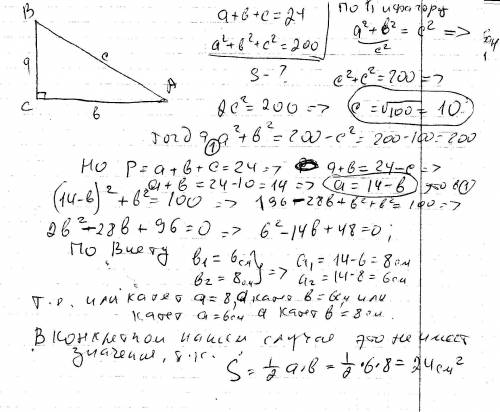 B
a
c
C
b
A
a+b+c=24
a²+b²+c²=200
S-?
По Пифагору
a²+b²=c² =>
c²
c²+c²=200 =>
2c²=200 => c=√100=10
тогда a²+b²=200-c²=200-100=200
Но P=a+b+c=24 => a+b=24-c =>
a+b=24-10=14 => a=14-b это в (1)
(14-b)²+b²=100 => 196-28b+b²+b²=100 =>
2b²-28b+96=0 => b²-14b+48=0;
По Виету b₁=6см => a₁=14-6=8см
b₂=8см a₂=14-8=6см
т.е. или катет a=8, а катет b=6см или
катет a=6см а катет b=8см.
В конкретном нашем случае это не имеет
значения, т.к.
S=½a·b=½·6·8=24см²